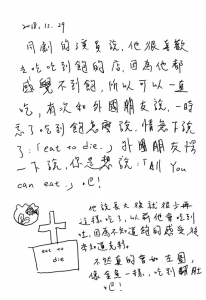 2018.12.29
同劇的演員說,他很喜歡
去吃吃到飽的店,因為他都
感覺不到飽,所以可以一直
吃,有次和外國朋友說,一時
忘了吃到飽怎麼說,情急下說
了:「eat to die.」外國朋友愣
一下說,你是想說:「All You
can eat.」吧!
他說長大後就很少再
這樣吃了,以前他會吃到
吐,因為不知道飽的感受後
來知道克制。
不然真的會如左圖,
像金魚一樣,吃到翻肚
吧!
eat to
die